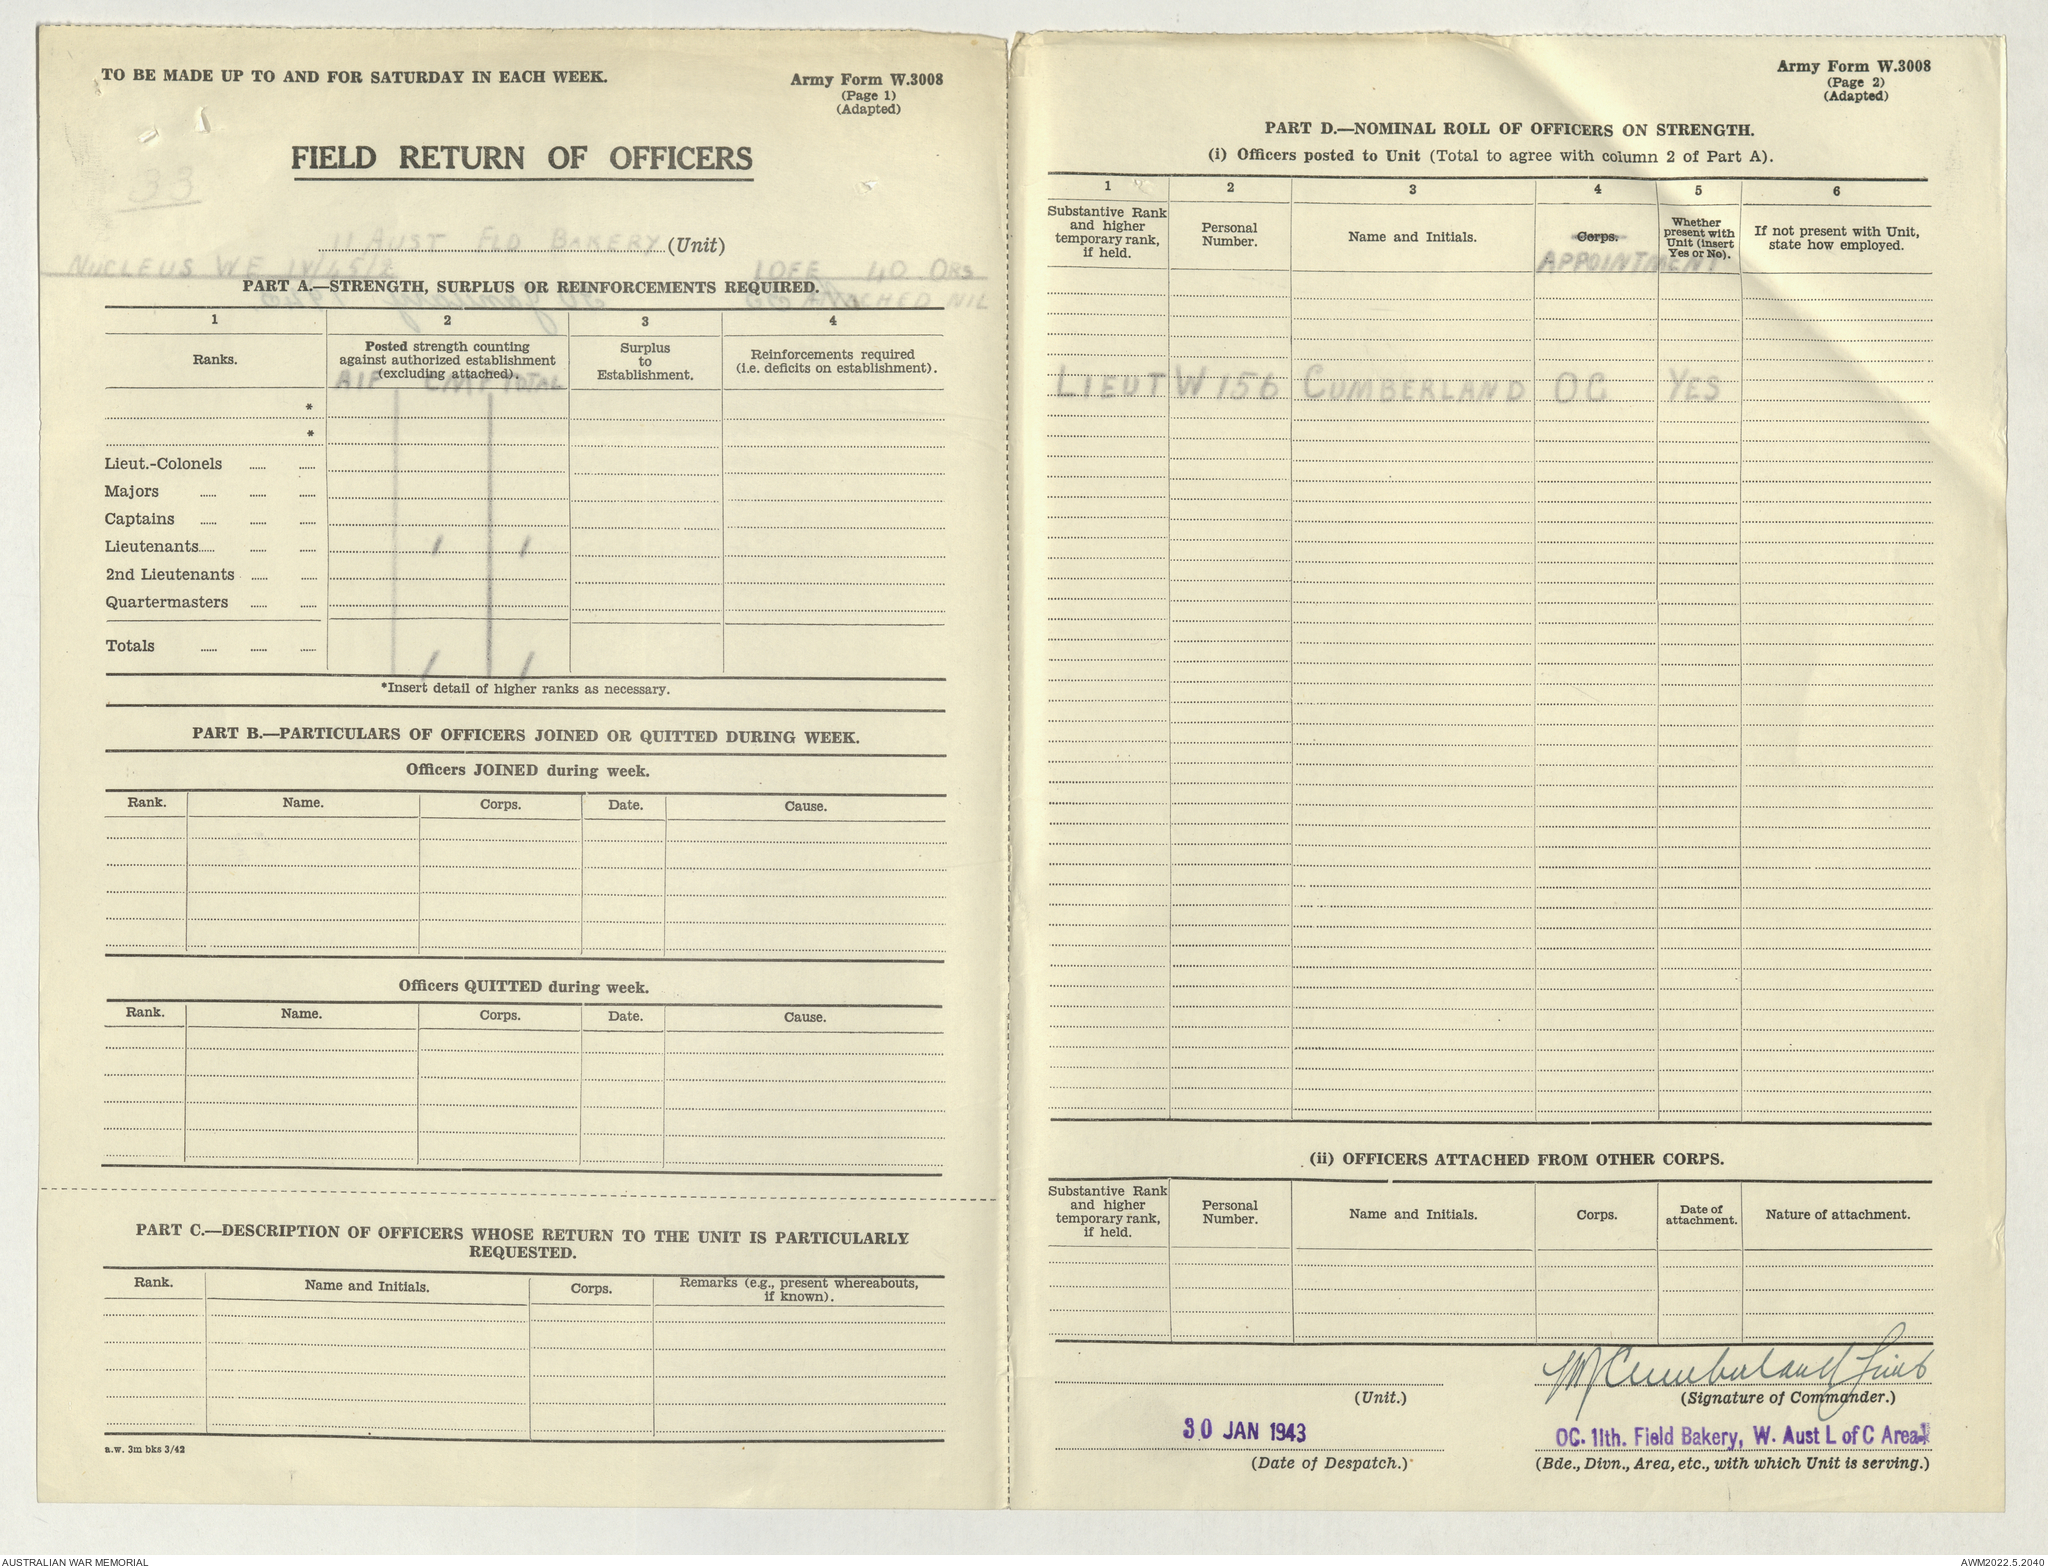 TO BE MADE UP TO AND FOR SATURDAY IN EACH WEEK.
Army Form W.3008
(Page 1)
(Adapted)
33
FIELD RETURN OF OFFICERS
11 AUST FLD BAKERY (Unit)
NUCLEUS WE IV/45/2
1 OFF 40 ORs
ATTACHED NIL
PART A.—STRENGTH, SURPLUS OR REINFORCEMENTS REQUIRED.
1 2 3 4
Ranks.
Posted strength counting against authorized establishment (excluding attached).
Surplus to Establishment.
Reinforcements required (i.e. deficits on establishment).
AIF CMF TOTAL
*
*
Lieut.-Colonels ...... ......
Majors ...... ...... ......
Captains ...... ...... ......
Lieutenants...... ...... ...... 1 1
2nd Lieutenants ...... ......
Quartermasters ...... ......
Totals ...... ...... ...... 1 1
*Insert detail of higher ranks as necessary.
PART B.—PARTICULARS OF OFFICERS JOINED OR QUITTED DURING WEEK.
Officers JOINED during week.
Rank. Name. Corps. Date. Cause.
Officers QUITTED during week.
Rank. Name. Corps. Date. Cause.
PART C.—DESCRIPTION OF OFFICERS WHOSE RETURN TO THE UNIT IS PARTICULARLY
REQUESTED.
Rank. Name and Initials. Corps. Remarks (e.g., present whereabouts, if known).
a.w. 3m bks 3/42
Army Form W.3008
(Page 2)
(Adapted)
PART D.—NOMINAL ROLL OF OFFICERS ON STRENGTH.
(i) Officers posted to Unit (Total to agree with column 2 of Part A).
1 2 3 4 5 6
Substantive Rank and higher temporary rank, if held.
Personal Number.
Name and Initials.
Corps.
APPOINTMENT
Whether present with Unit (insert Yes or No).
If not present with Unit, state how employed.
LIEUT W156 CUMBERLAND OC YES
(ii) OFFICERS ATTACHED FROM OTHER CORPS.
Substantive Rank and higher temporary rank, if held.
Personal Number.
Name and Initials.
Corps.
Date of attachment.
Nature of attachment.
Cumberland Lieut
(Unit.) (Signature of Commander.)
30 JAN 1943
OC. 11th. Field Bakery, W. Aust L of C Area
(Date of Despatch.) (Bde., Divn., Area, etc., with which Unit is serving.)
AUSTRALIAN WAR MEMORIAL
AWM2022.5.2040